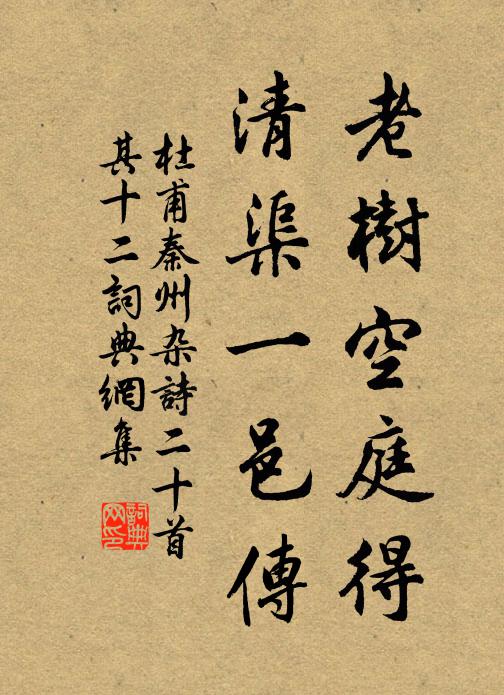 老樹空庭得
清渠一邑傳
杜甫秦州杂詩二十首
其十二詞典網集
詞典网印